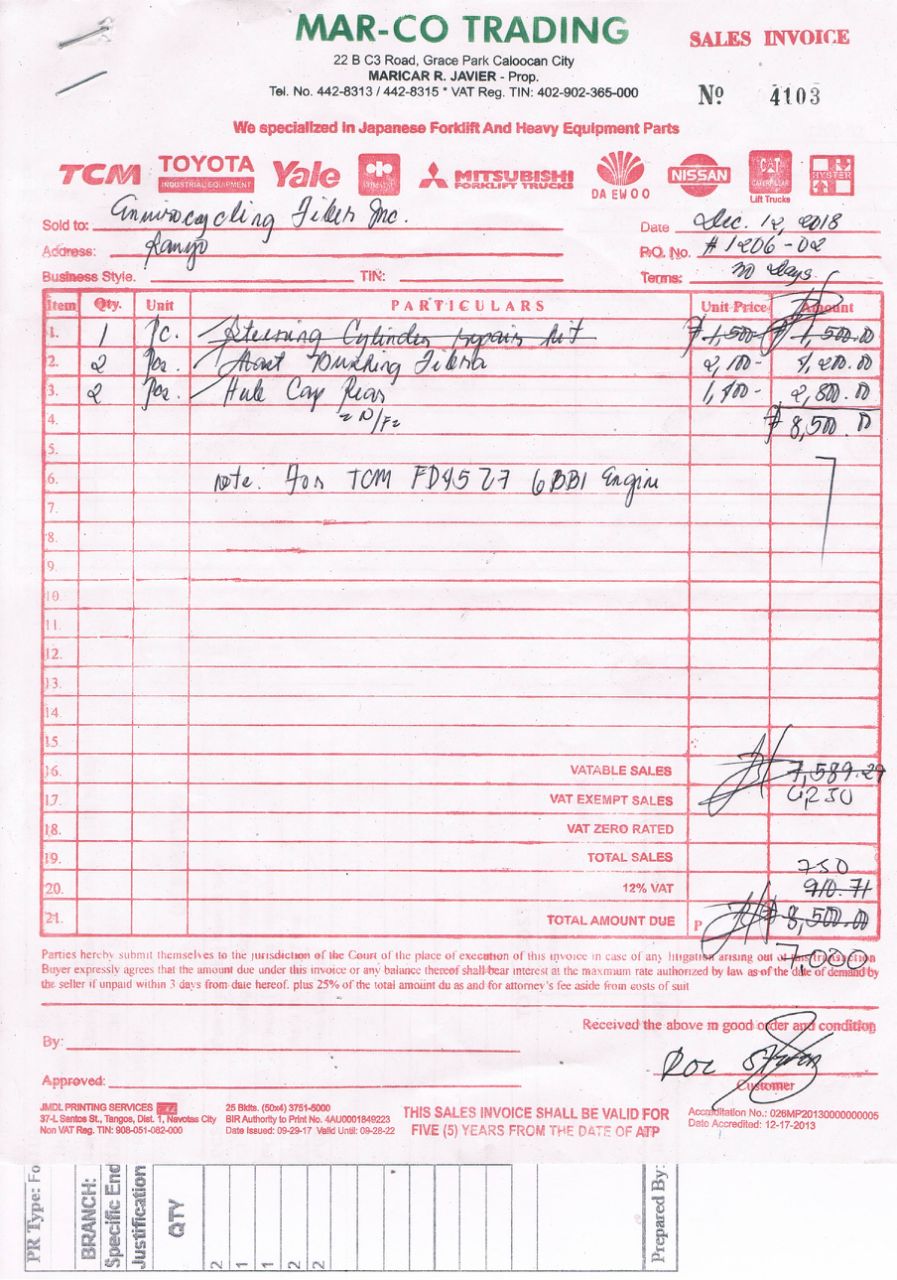 MAR-CO TRADING
SALES INVOICE
22 B C3 Road, Grace Park Caloocan City
MARICAR R. JAVIER - Prop.
Tel. No. 442-8313 / 442-8315 * VAT Reg. TIN: 402-902-365-000
Nº 4103
We specialized In Japanese Forklift And Heavy Equipment Parts
TCM TOYOTA INDUSTRIAL EQUIPMENT Yale MITSUBISHI FORKLIFT TRUCKS DAEWOO NISSAN CAT CATERPILLAR Lift Trucks HYSTER
Sold to: Fiber Inc. Date Dec. 12, 2018
Address: P.O. No. #1206-02
Business Style. TIN: Terms: 30 Days
Item Qty. Unit PARTICULARS Unit Price Amount
1. 1 pc. Steering Cylinder repair kit 1,500- 1,500.00
2. 2 pcs. 2,100- 4,200.00
3. 2 pcs. Hub Cap Rear 1,400- 2,800.00
4. 8,500.00
5.
6. note: For TCM FD45Z7 6BB1 Engine
7.
8.
9.
10.
11.
12.
13.
14.
15.
16. VATABLE SALES 7,589.29
17. VAT EXEMPT SALES 6250
18. VAT ZERO RATED
19. TOTAL SALES 750
20. 12% VAT 910.71
21. TOTAL AMOUNT DUE P 8,500.00
7,000
Parties hereby submit themselves to the jurisdiction of the Court of the place of execution of this invoice in case of any litigation arising out of this transaction
Buyer expressly agrees that the amount due under this invoice or any balance thereof shall bear interest at the maximum rate authorized by law as of the date of demand by
the seller if unpaid within 3 days from date hereof. plus 25% of the total amount du as and for attorney's fee aside from costs of suit
Received the above in good order and condition
By:
Customer
Approved:
JMDL PRINTING SERVICES
37-L Santos St., Tangos, Dist. 1, Navotas City
Non VAT Reg. TIN: 908-051-082-000
25 Bklts. (50x4) 3751-5000
BIR Authority to Print No. 4AU0001849223
Date Issued: 09-29-17 Valid Until: 09-28-22
THIS SALES INVOICE SHALL BE VALID FOR
FIVE (5) YEARS FROM THE DATE OF ATP
Accreditation No.: 026MP20130000000005
Date Accredited: 12-17-2013
PR Type: Fo
BRANCH:
Specific End
Justification
QTY
2
1
1
2
2
Prepared By: